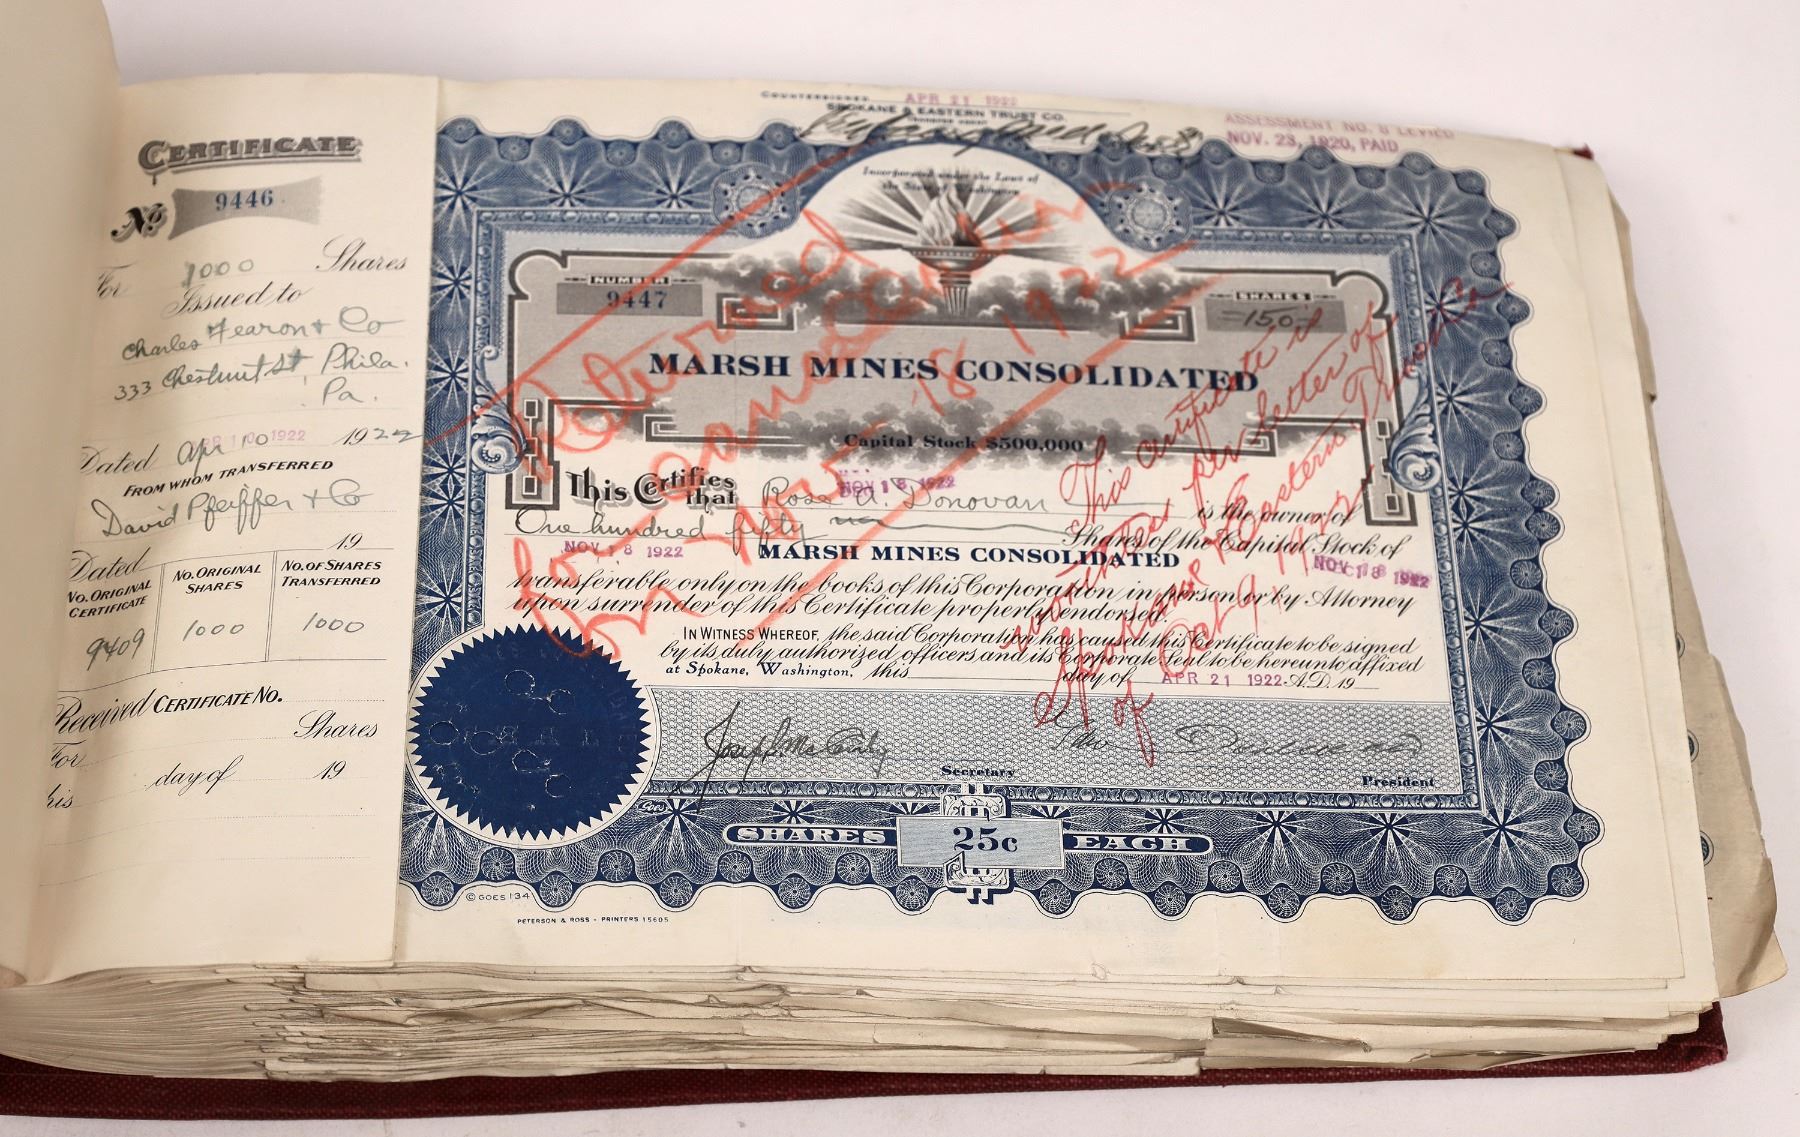 CERTIFICATE
No 9446
For 1000 Shares
Issued to
Charles Fearon & Co
333 Chestnut St, Phila.
Pa.
Dated Apr 10 1922 1922
FROM WHOM TRANSFERRED
David Pfeiffer & Co
Dated 19
No. ORIGINAL CERTIFICATE
No. ORIGINAL SHARES
No. OF SHARES TRANSFERRED
9409 1000 1000
Received CERTIFICATE No.
For Shares
his day of 19
COUNTERSIGNED APR 21 1922
SPOKANE & EASTERN TRUST CO.
TRANSFER AGENT
ASSESSMENT NO. 8 LEVIED
NOV. 23, 1920, PAID
Incorporated under the Laws of
the State of Washington
NUMBER
9447
SHARES
-150-
MARSH MINES CONSOLIDATED
Capital Stock $500,000
This Certifies that Rose A. Donovan is the owner of
NOV 18 1922
One hundred fifty Shares of the Capital Stock of
NOV 18 1922
MARSH MINES CONSOLIDATED
NOV 18 1922
transferable only on the books of this Corporation in person or by Attorney
upon surrender of this Certificate properly endorsed.
IN WITNESS WHEREOF, the said Corporation has caused this Certificate to be signed
by its duly authorized officers and its Corporate Seal to be hereunto affixed
at Spokane, Washington, this day of APR 21 1922 A.D. 19
Secretary
President
SHARES 25c EACH
© GOES 134
GOES
PETERSON & ROSS - PRINTERS 15605
Returned
for Cancellation
Nov 18 1922
This certificate is
per letter of
Spokane & Eastern Trust Co
of Oct 9 1922